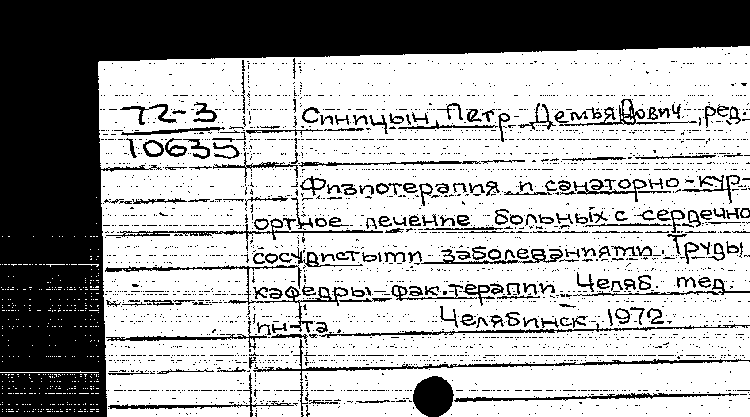 72-3
10635
Синицын, Петр Демьянович, ред.
Физиотерапия и санаторно-кур-
ортное лечение больных с сердечно
сосудистыми заболеваниями. Труды
кафедры фак. терапии Челяб. мед.
ин-та. Челябинск, 1972.